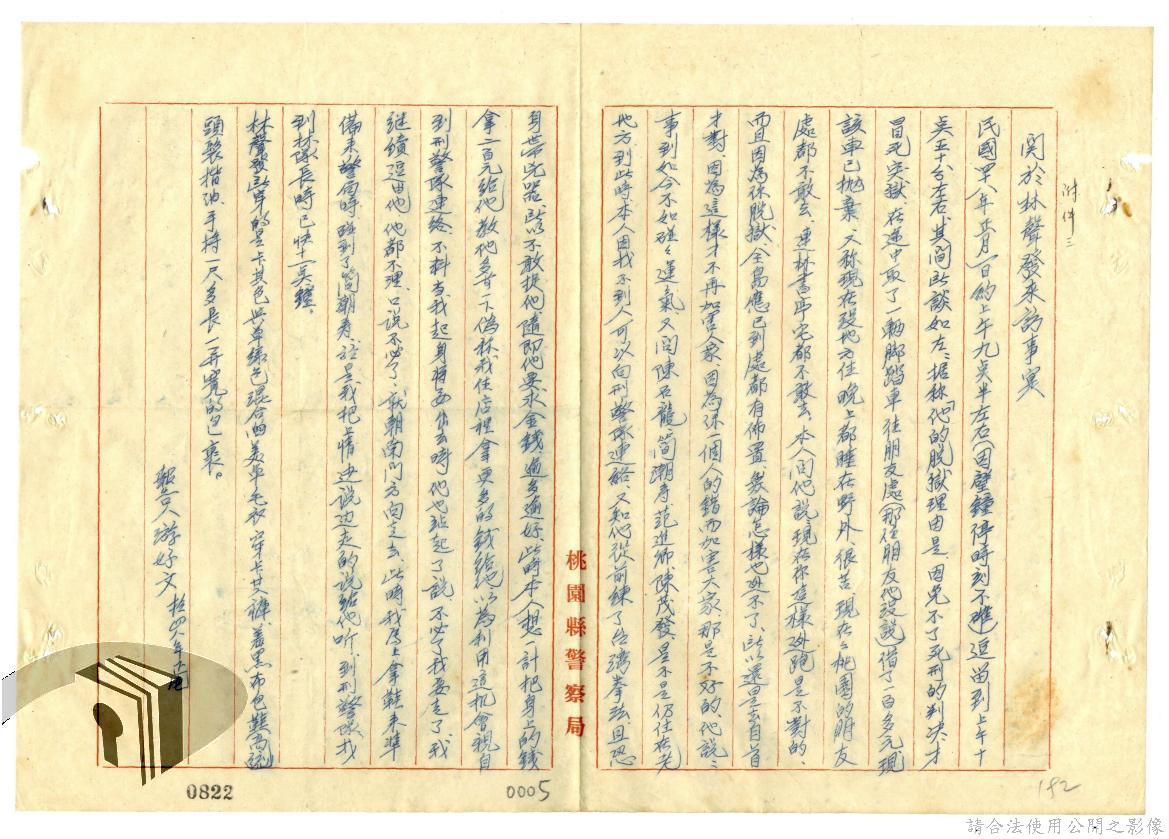 附件三
関於林聲發來訪事実
民國四八年正月一日約上午九点半左右(因壁鐘停時刻不準)逗留到上午十
点五十分左右,其间所談如左、据称「他的脱獄理由是、因免不了死刑的判决才
冒死突獄、在途中取了一輌脚踏車往朋友處(那位朋友他没説)借了一百多元現
該車已抛棄、又称現在没地方住晚上都睡在野外、很苦、現在桃園的朋友
處都不敢去、連林書宅都不敢去、本人问他説、現在你這樣逃跑是不對的、
而且因為你脱獄、全島應已到處都有佈置、無論怎樣也逃不了、所以還是去自首
才對、因為這樣才不再加害人家、因為你一個人的錯而加害大家、那是不好的、他説、
事到如今不如碰々運氣、又问陳石龍、簡潮寿、范進卿、陳茂發、是不是仍住在老
地方、到此時本人因找不到人可以向刑警隊連絡、又知他從前練了台湾拳法、且恐
身带兇器、所以不敢捉他隨即他要求金錢、過多過好、此時本人想一計把身上的錢
拿二百元給他教他多等一下偽称我往店裡拿更多的錢給他以為利用這機會親自
到刑警隊連絡、不料當我起身将要出去時、他也站起了説、不必了我要走了、我
继續逗留他、他都不理、口説不必了、就朝南门方向走去、此時我馬上拿鞋来準
備来警局時、碰到了簡潮寿、於是我把情边説边走的説給他听、到刑警隊找
到林隊長時已快十一点鐘。
林聲發所穿的是卡其色與草綠色混合的美軍毛衣、穿卡其褲、着黑布包鞋、高達
頭髮揩油、手持一尺多長一尺寬的包裹。
報告人 游好文
桃園縣警察局
0822
0005
182
請合法使用公開之影像